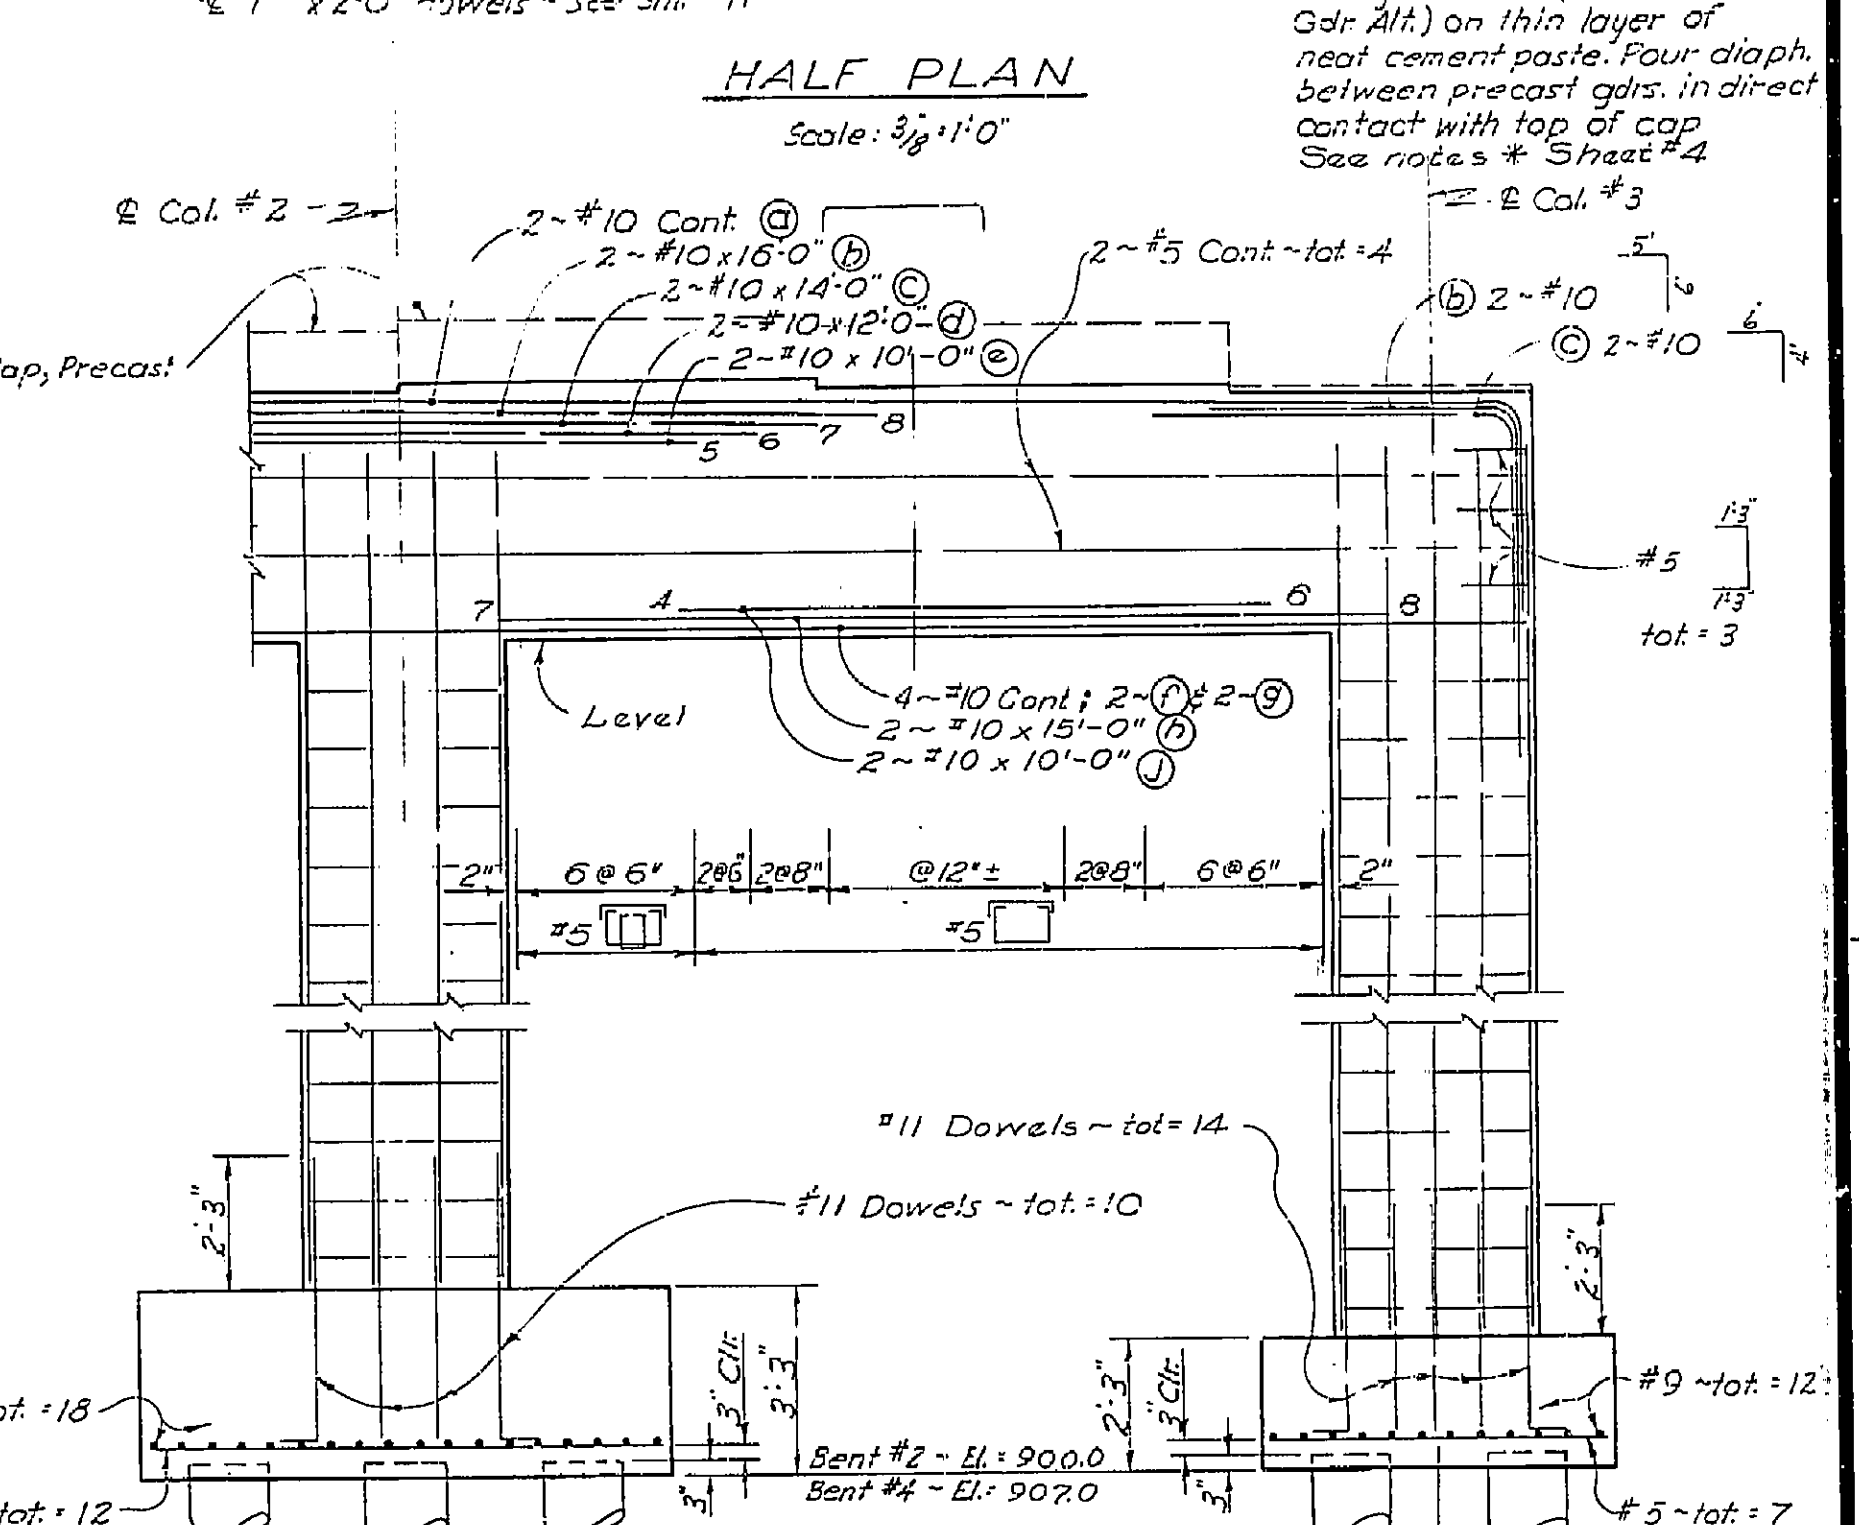 x 2'-0" dowels ~ See Sht.
HALF PLAN
Scale: 3/8"=1'-0"
Gdr. Alt.) on thin layer of
neat cement paste. Pour diaph.
between precast gdrs. in direct
contact with top of cap
See notes * Sheet #4
℄ Col. #2
℄ Col. #3
2~#10 Cont. (a)
2~#10 x 16'-0" (b)
2~#10 x 14'-0" (c)
2~#10 x 12'-0" (d)
2~#10 x 10'-0" (e)
2~#5 Cont. ~ tot. = 4
5'
6'
(b) 2~#10
(c) 2~#10
6'
4'
ap, Precast
8
7
6
5
1'-3"
#5
1'-3"
tot. = 3
7
4
6
8
Level
4~#10 Cont; 2~(f) & 2~(g)
2~#10 x 15'-0" (h)
2~#10 x 10'-0" (j)
2"
6@6"
2@6"
2@8"
@12"±
2@8"
6@6"
2"
#5
#5
#11 Dowels ~ tot = 14
#11 Dowels ~ tot. = 10
2'-3"
2'-3"
3" Clr.
3'-3"
2'-3"
3" Clr.
ot. = 18
#9 ~ tot. = 12
Bent #2 ~ El. = 900.0
Bent #4 ~ El. = 907.0
3"
3"
tot. = 12
#5 ~ tot. = 7